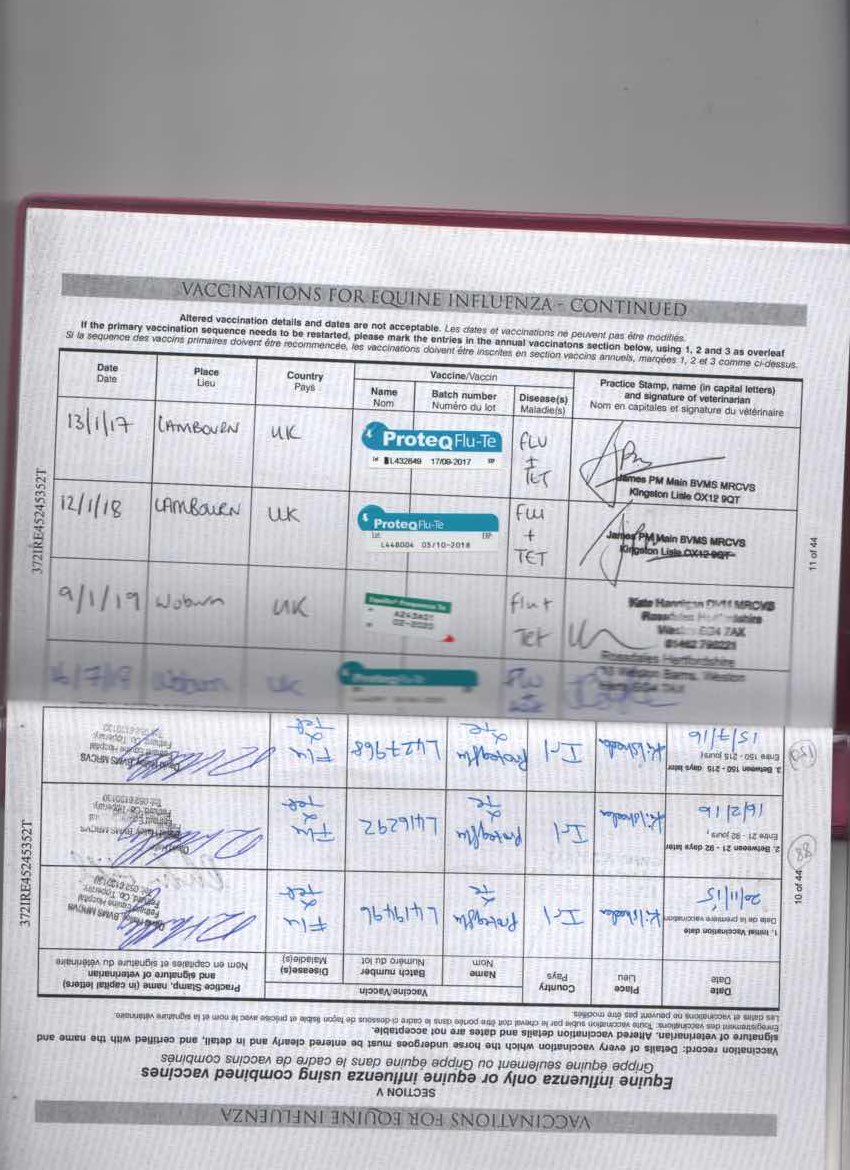 VACCINATIONS FOR EQUINE INFLUENZA - CONTINUED
Altered vaccination details and dates are not acceptable. Les dates et vaccinations ne peuvent pas être modifiés.
If the primary vaccination sequence needs to be restarted, please mark the entries in the annual vaccinatons section below, using 1, 2 and 3 as overleaf
Si la sequence des vaccins primaires doivent être recommencée, les vaccinations doivent être inscrites en section vaccins annuels, marquées 1, 2 et 3 comme ci-dessus.
Date Place Country Vaccine/Vaccin Practice Stamp, name (in capital letters)
Date Lieu Pays Name Batch number Disease(s) and signature of veterinarian
Nom Numéro du lot Maladie(s) Nom en capitales et signature du vétérinaire
13/1/17 LAMBOURN UK ProteqFlu-Te FLU
L432649 17/09-2017 + TET
James PM Main BVMS MRCVS
Kingston Lisle OX12 9QT
12/1/18 LAMBOURN UK ProteqFlu-Te FLU
L448004 03/10-2018 + TET
James PM Main BVMS MRCVS
Kingston Lisle OX12 9QT
9/1/19 Woburn UK Flu +
A243A01 Tet
02-2020
Kate Hannigan MRCVS
Rosedales Hertfordshire
Weston SG4 7AX
01462 790221
Rosedales Hertfordshire
Weston Barns, Weston
SG4 7AX
16/7/18 Woburn UK ProteqFlu-Te
372IRE45245352T
11 of 44
VACCINATIONS FOR EQUINE INFLUENZA
SECTION V
Equine influenza only or equine influenza using combined vaccines
Grippe équine seulement ou Grippe équine dans le cadre de vaccins combinés
Vaccination record: Details of every vaccination which the horse undergoes must be entered clearly and in detail, and certified with the name and
signature of veterinarian. Altered vaccination details and dates are not acceptable.
Enregistrement des vaccinations: Toute vaccination subie par le cheval doit être portée dans le cadre ci-dessous de façon lisible et précise avec le nom et la signature vétérinaire.
Les dates et vaccinations ne peuvent pas être modifiés.
Date Place Country Vaccine/Vaccin Practice Stamp, name (in capital letters)
Date Lieu Pays Name Batch number Disease(s) and signature of veterinarian
Nom Numéro du lot Maladie(s) Nom en capitales et signature du vétérinaire
1. Initial Vaccination date
Date de la première vaccination
20/11/15 Kilsheelan Irl Proteqflu & Te L419496 Flu & Tet
2. Between 21 - 92 days later
Entre 21 - 92 jours
16/2/16 Kilsheelan Irl Proteqflu & Te L416292 Flu & Tet
3. Between 150 - 215 days later
Entre 150 - 215 jours
15/7/16 Kilsheelan Irl Proteqflu & Te L427968 Flu & Tet
Fethard Equine Hospital
Fethard, Co. Tipperary
Tel: 052 6130130
88
150
10 of 44
372IRE45245352T